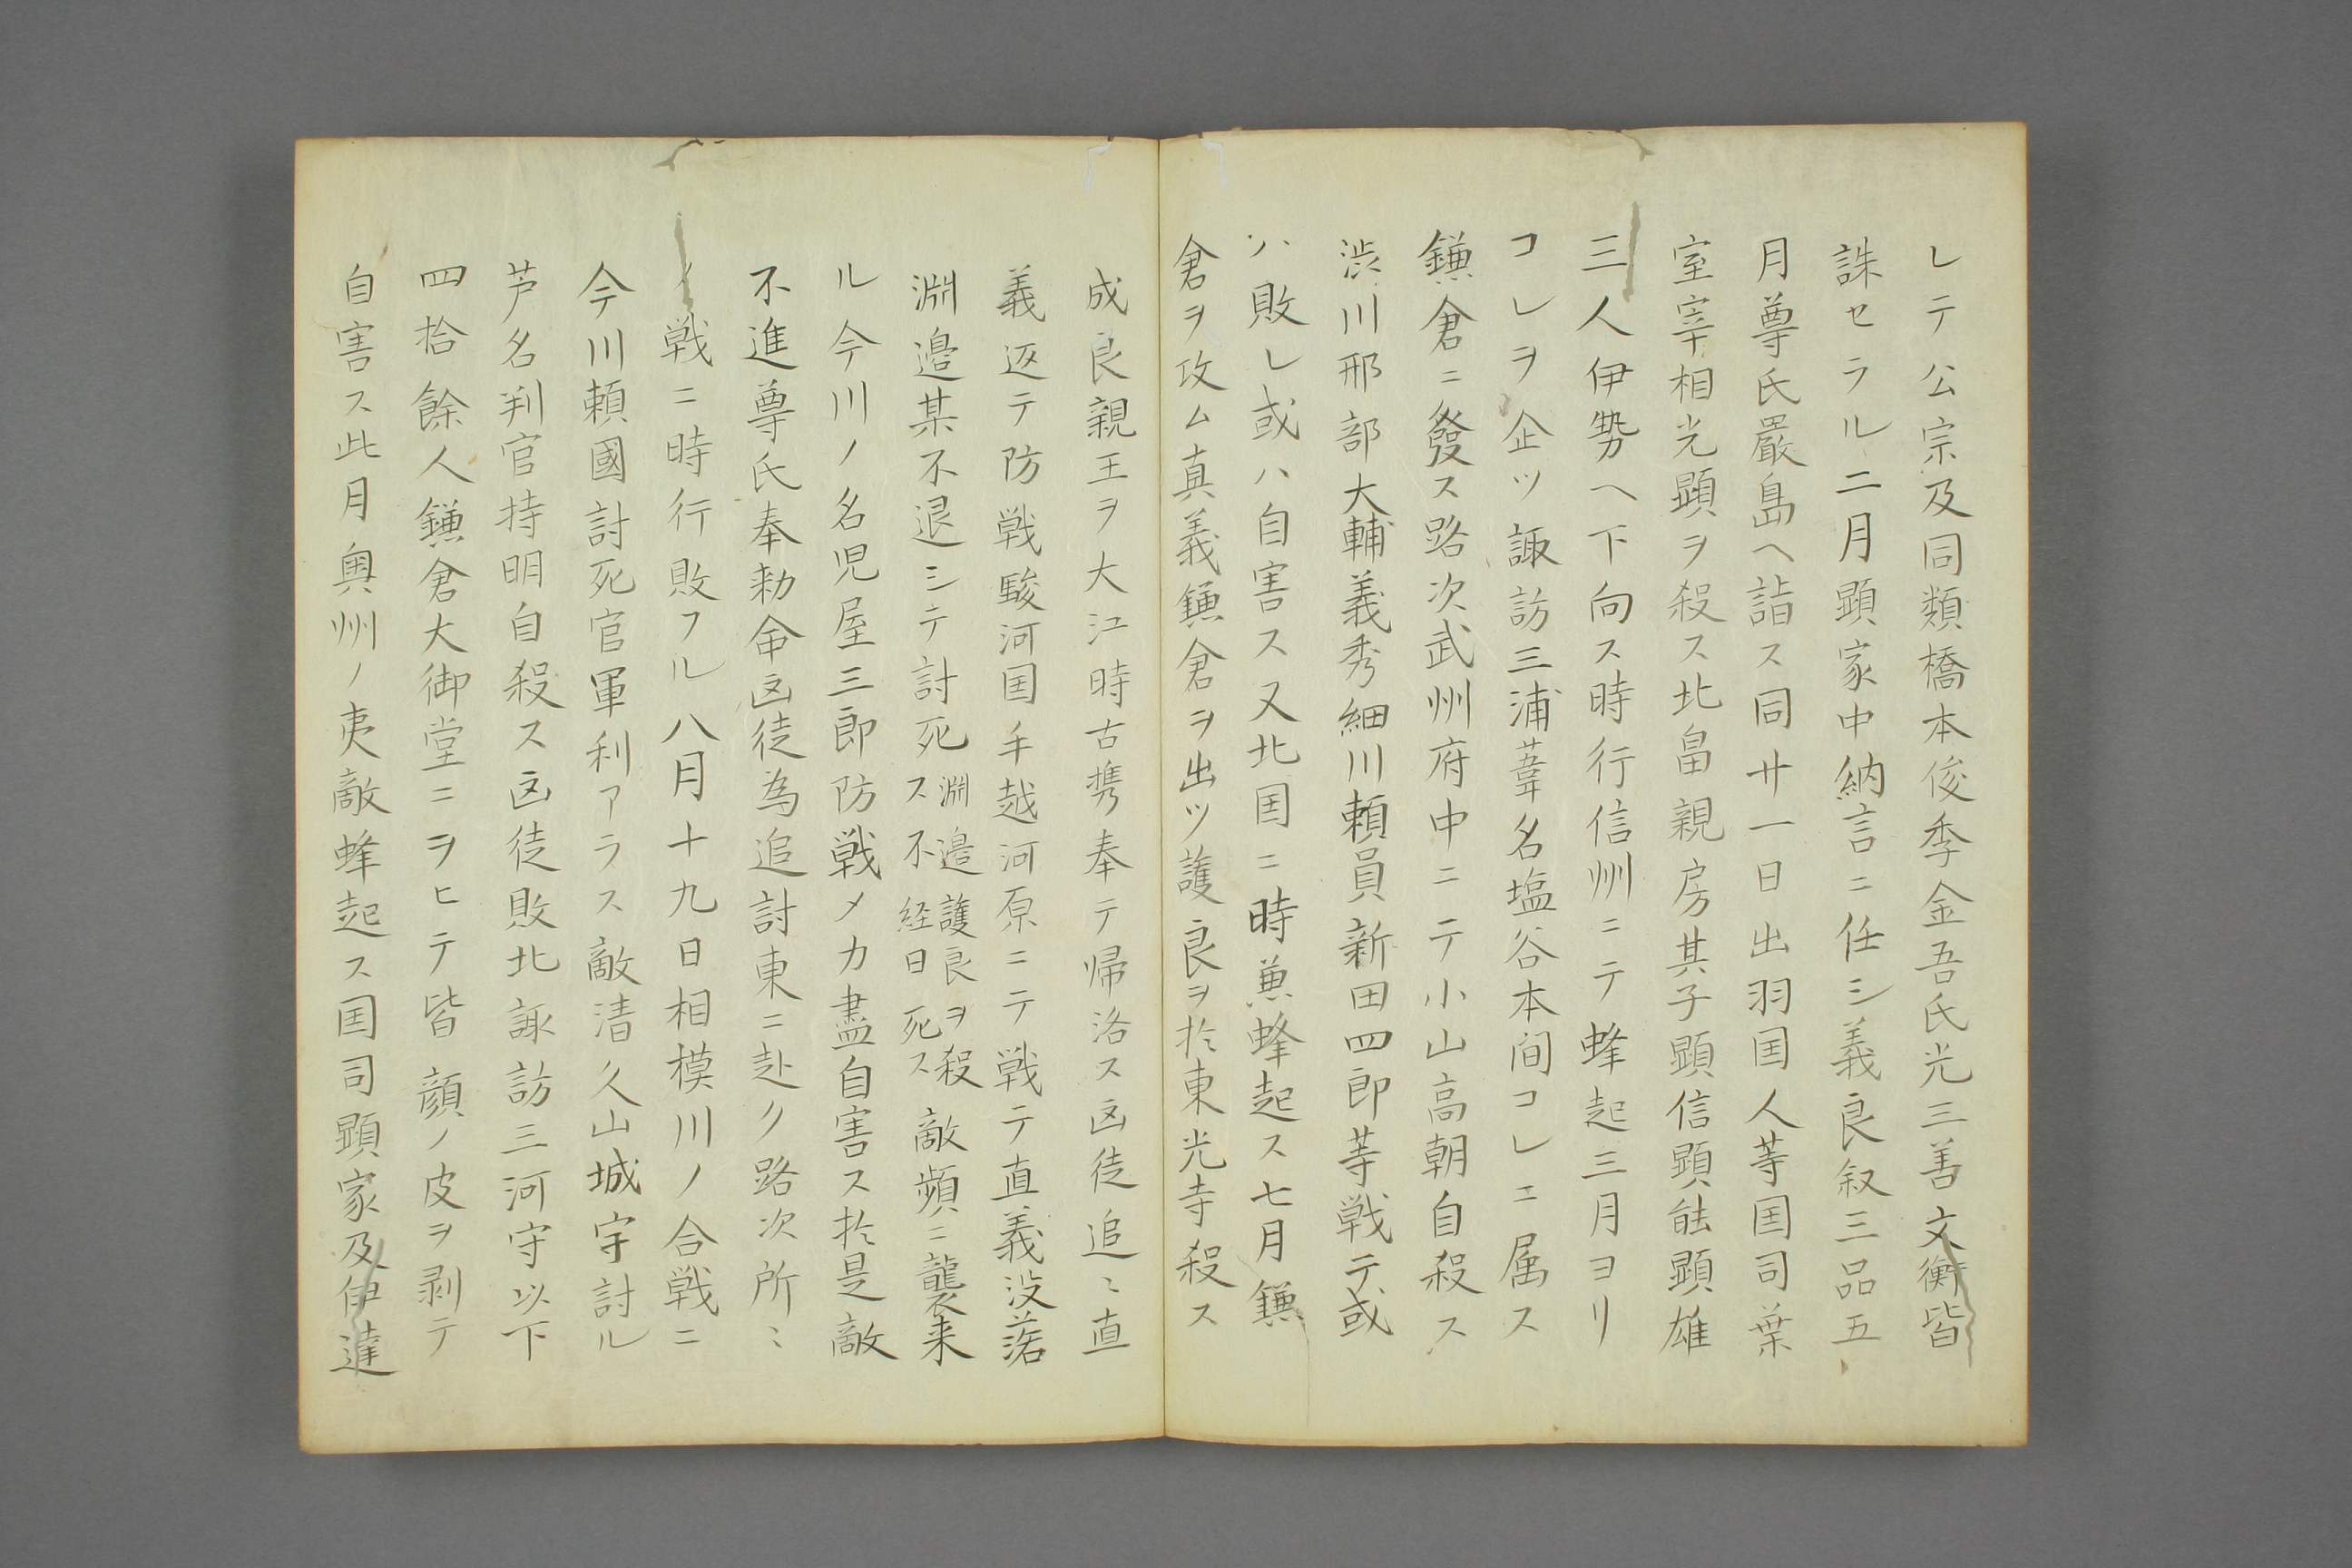 レテ公宗及同類橋本俊季金吾氏光三善文衡皆
誅セラル二月顕家中納言ニ任シ義良叙三品五
月尊氏嚴島ヘ詣ス同廿一日出羽国人等国司葉
室宰相光顕ヲ殺ス北畠親房其子顕信顕能顕雄
三人伊勢ヘ下向ス時行信州ニテ蜂起三月ヨリ
コレヲ企ツ諏訪三浦葦名塩谷本间コレエ属ス
鎌倉ニ發ス路次武州府中ニテ小山高朝自殺ス
渋川邢部大輔義秀細川頼員新田四郎等戦テ或
ハ敗レ或ハ自害ス又北国ニ時兼蜂起ス七月鎌
倉ヲ攻ム真義鎌倉ヲ出ツ護良ヲ於東光寺殺ス
成良親王ヲ大江時古携奉テ帰洛ス凶徒追ミ直
義返テ防戦駿河国手越河原ニテ戦テ直義没落
淵邉某不退シテ討死ス淵邉護良ヲ殺不経日死ス敵頻ニ襲来
ル今川ノ名児屋三郎防戦メカ盡自害ス於是敵
不進尊氏奉勅命凶徒為追討東ニ赴ク路次所ミ
ノ戦ニ時行敗フル八月十九日相模川ノ合戦ニ
今川頼國討死官軍利アラス敵清久山城守討ル
芦名判官持明自殺ス凶徒敗北諏訪三河守以下
四拾餘人鎌倉大御堂ニヲヒテ皆顔ノ皮ヲ剥テ
自害ス此月奥州ノ夷敵蜂起ス国司顕家及伊達